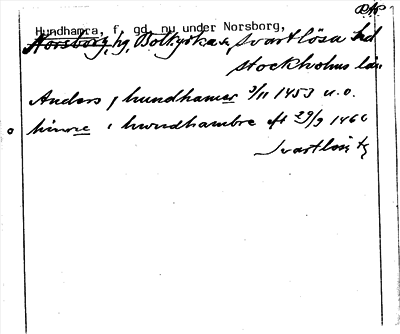 Hundhamra, f. gd, nu under Norsborg,
Norsborg, hg, Botkyrka sn, Svartlösa hd
Stockholms län
Anders j hundhamer 3/11 1453 u.o.
hinrec i hwndhambre eft 29/9 1460
Svartlösa